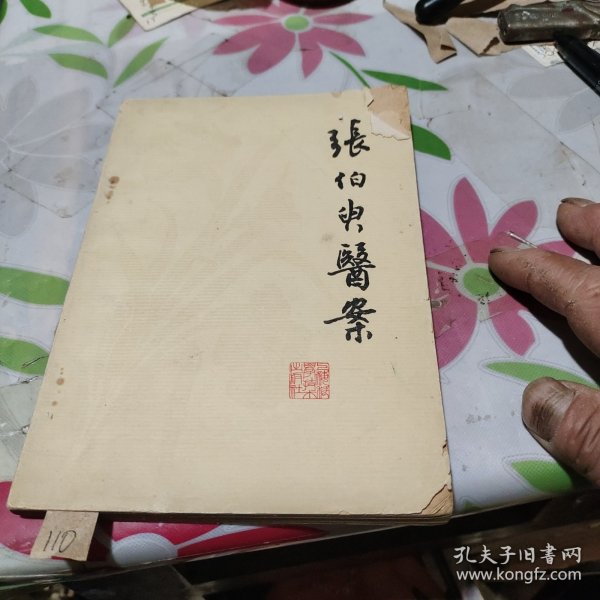 張伯臾醫案
110
孔夫子旧書网
www.kongfz.com